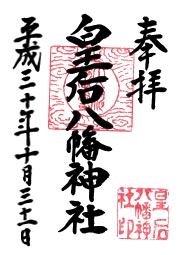 奉拝
皇后八幡神社
平成三十年十月三十一日
皇后
八幡神
社印